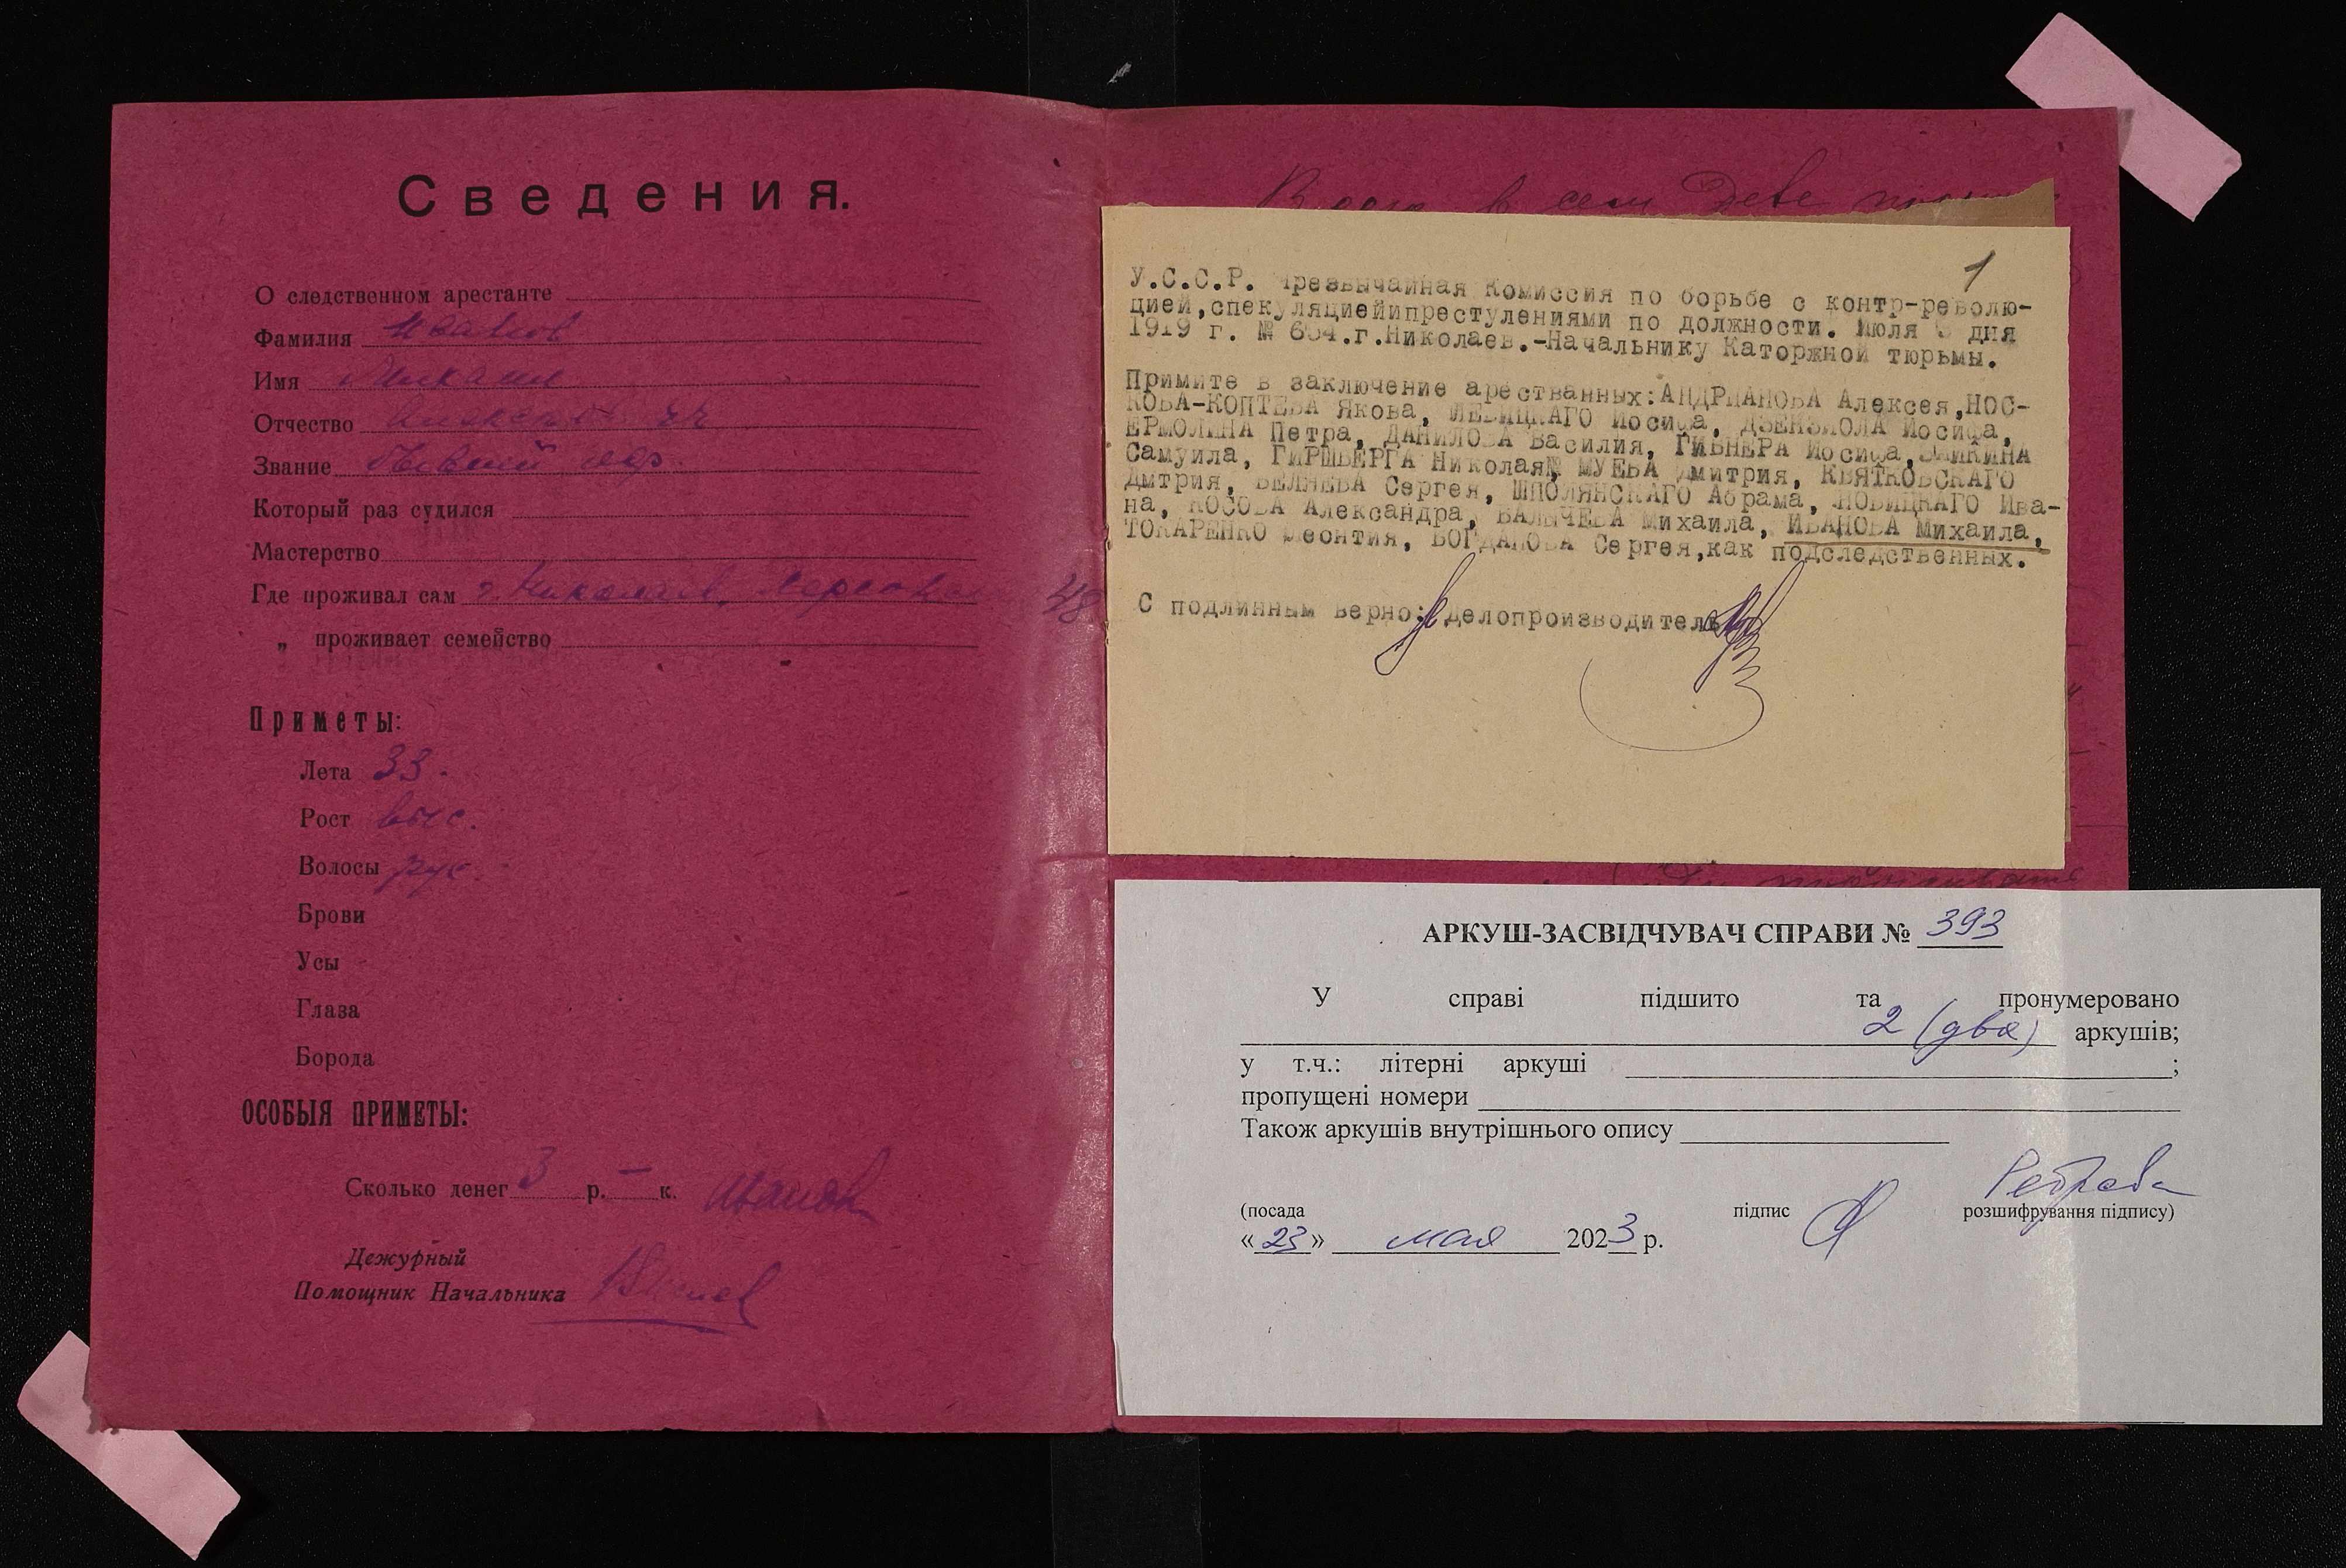 Сведения.
О следственном арестанте
Фамилия Иванов
Имя Михаил
Отчество
Звание Бывший офр.
Который раз судился
Мастерство
Где проживал сам г. Николаев, Херсонск 48
„ проживает семейство
Приметы:
Лета 33.
Рост выс.
Волосы рус.
Брови
Усы
Глаза
Борода
ОСОБЫЯ ПРИМЕТЫ:
Сколько денег 3 р. — к. Иванов
Дежурный
Помощник Начальника
В сем Деле
1
У.С.С.Р. Чрезвычайная Комиссия по борьбе с контр-револю-
цией,спекуляциейипреступлениями по должности. Июля дня
1919 г. № 654.г.Николаев.-Начальнику Каторжной тюрьмы.
Примите в заключение арестванных:АНДРИАНОВА Алексея,НОС-
КОВА-КОПТЕВА Якова, ЛЕВИЦКАГО Иосифа, Иосифа,
ЕРМОЛИНА Петра, ДАНИЛОВА Василия, ГИБНЕРА Иосифа,
Самуила, ГИРШБЕРГА Николая, МУЕВА Дмитрия, КВЯТКОВСКАГО
Дмтрия, БЕЛЯЕВА Сергея, ШПОЛЯНСКАГО Абрама, НОВИЦКАГО Ива-
на, КОСОВА Александра, БАЛЫЧЕВА Михаила, ИВАНОВА Михаила,
ТОКАРЕНКО Леонтия, БОГДАНОВА Сергея,как подследственных.
С подлинным верно: Делопроизводитель
АРКУШ-ЗАСВІДЧУВАЧ СПРАВИ № 393
У справі підшито та пронумеровано
2 (два) аркушів;
у т.ч.: літерні аркуші ;
пропущені номери
Також аркушів внутрішнього опису
Реброва
(посада підпис розшифрування підпису)
« 23 » мая 2023 р.